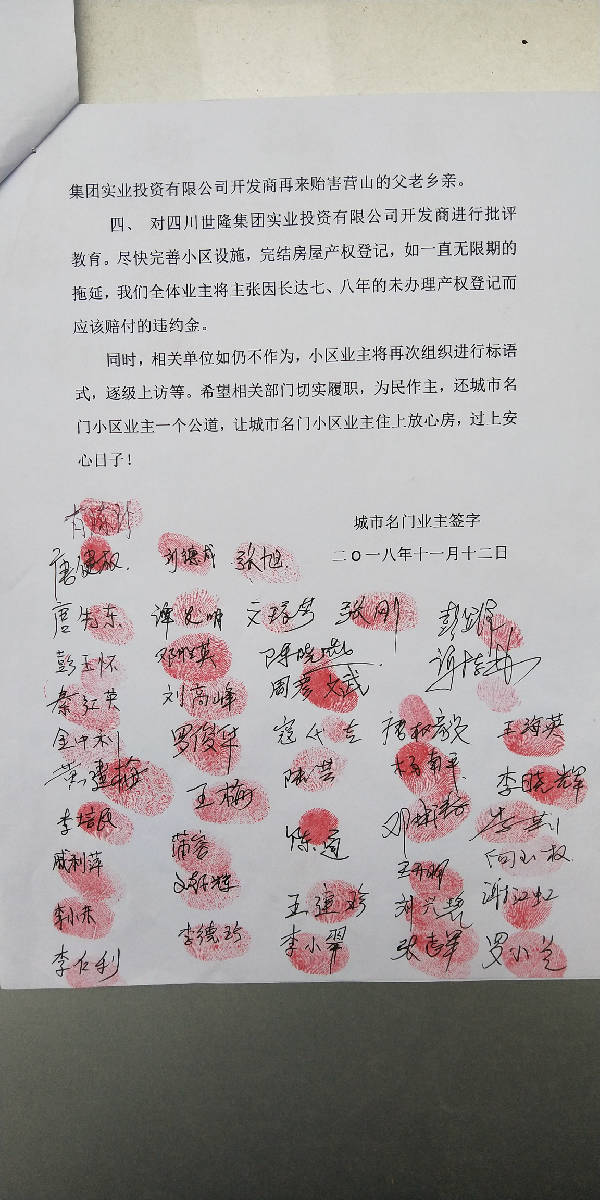 集团实业投资有限公司开发商再来贻害营山的父老乡亲。
四、 对四川世隆集团实业投资有限公司开发商进行批评
教育。尽快完善小区设施，完结房屋产权登记，如一直无限期的
拖延，我们全体业主将主张因长达七、八年的未办理产权登记而
应该赔付的违约金。
同时，相关单位如仍不作为，小区业主将再次组织进行标语
式，逐级上访等。希望相关部门切实履职，为民作主，还城市名
门小区业主一个公道，让城市名门小区业主住上放心房，过上安
心日子！
城市名门业主签字
二〇一八年十一月十二日
刘德成 张旭
张刚
彭玉怀
秦红英 刘高峰 周彦 文武
罗俊华 王海英
黄建梅 王梅 陈芸 杨南平 李晓辉
李培民 蒲容
戚利萍
王建珍
李德珍 李小翠 张志军 罗小兰
李仁利